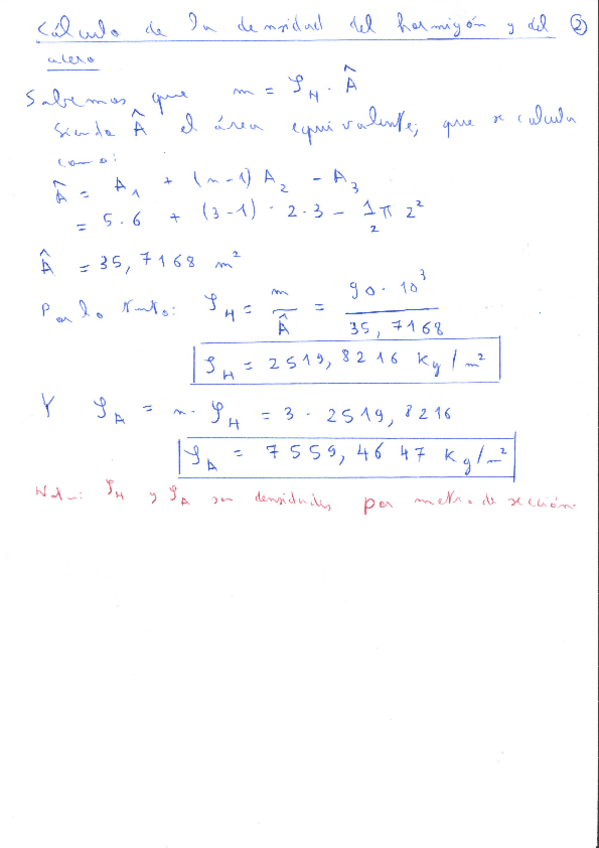 Cálculo de la densidad del hormigón y del ②
acero
Sabemos que m = ρ_H · Â
Siendo Â el área equivalente, que se calcula
como:
Â = A₁ + (n-1) A₂ - A₃
= 5·6 + (3-1) · 2·3 - 1/2 π 2²
Â = 35,7168 m²
Por lo tanto: ρ_H = m/Â = 90·10³/35,7168
ρ_H = 2519,8216 Kg/m²
Y ρ_A = n·ρ_H = 3 · 2519,8216
ρ_A = 7559,4647 Kg/m²
Nota: ρ_H y ρ_A son densidades por metro de sección.